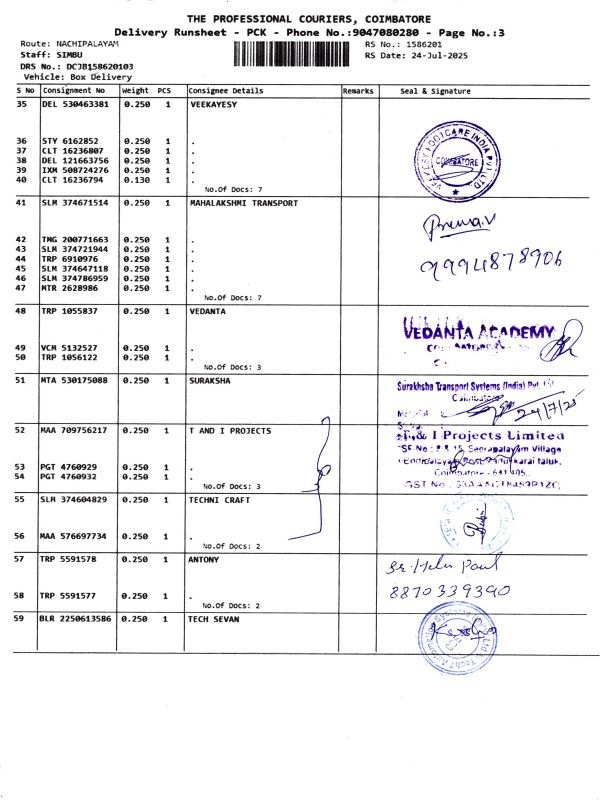 THE PROFESSIONAL COURIERS, COIMBATORE
Delivery Runsheet - PCK - Phone No.:9047080280 - Page No.:3
Route: NACHIPALAYAM
RS No.: 1586201
Staff: SIMBU
RS Date: 24-Jul-2025
DRS No.: DCJB158620103
Vehicle: Box Delivery
S No Consignment No Weight PCS Consignee Details Remarks Seal & Signature
35 DEL 530463381 0.250 1 VEEKAYESY
36 STY 6162852 0.250 1 .
37 CLT 16236807 0.250 1 .
38 DEL 121663756 0.250 1 .
39 IXM 508724276 0.250 1 .
40 CLT 16236794 0.130 1 .
No.Of Docs: 7
COIMBATORE
41 SLM 374671514 0.250 1 MAHALAKSHMI TRANSPORT
42 TMG 200771663 0.250 1 .
43 SLM 374721944 0.250 1 .
44 TRP 6910976 0.250 1 .
45 SLM 374647118 0.250 1 .
46 SLM 374786959 0.250 1 .
47 MTR 2628986 0.250 1 .
No.Of Docs: 7
9994878906
48 TRP 1055837 0.250 1 VEDANTA
49 VCM 5132527 0.250 1 .
50 TRP 1056122 0.250 1 .
No.Of Docs: 3
VEDANTA ACADEMY
51 MTA 530175088 0.250 1 SURAKSHA
Surakhsha Transport Systems (India) Pvt. Ltd
Coimbatore
24/7/25
52 MAA 709756217 0.250 1 T AND I PROJECTS
53 PGT 4760929 0.250 1 .
54 PGT 4760932 0.250 1 .
No.Of Docs: 3
T & I Projects Limited
Village
taluk,
Coimbatore - 641 405.
GST No
55 SLM 374604829 0.250 1 TECHNI CRAFT
56 MAA 576697734 0.250 1 .
No.Of Docs: 2
57 TRP 5591578 0.250 1 ANTONY
58 TRP 5591577 0.250 1 .
No.Of Docs: 2
Paul
8870339390
59 BLR 2250613586 0.250 1 TECH SEVAN